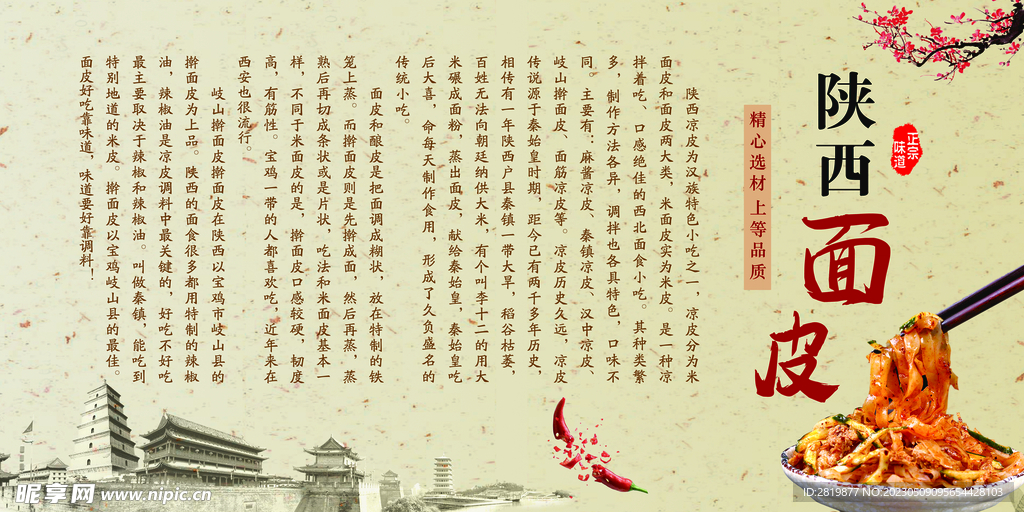 陕西
面
皮
正宗
味道
精心选材 上等品质
陕西凉皮为汉族特色小吃之一，凉皮分为米
面皮和面皮两大类，米面皮实为米皮。是一种凉
拌着吃、口感绝佳的西北面食小吃。其种类繁
多，制作方法各异，调拌也各具特色，口味不
同。主要有：麻酱凉皮、秦镇凉皮、汉中凉皮、
岐山擀面皮、面筋凉皮等。凉皮历史久远，凉皮
传说源于秦始皇时期，距今已有两千多年历史，
相传有一年陕西户县秦镇一带大旱，稻谷枯萎，
百姓无法向朝廷纳供大米，有个叫李十二的用大
米碾成面粉，蒸出面皮，献给秦始皇，秦始皇吃
后大喜，命每天制作食用，形成了久负盛名的
传统小吃。
面皮和酿皮是把面调成糊状，放在特制的铁
笼上蒸。而擀面皮则是先擀成面，然后再蒸，蒸
熟后再切成条状或是片状，吃法和米面皮基本一
样，不同于米面皮的是，擀面皮口感较硬，韧度
高，有筋性。宝鸡一带的人都喜欢吃。近年来在
西安也很流行。
岐山擀面皮擀面皮在陕西以宝鸡市岐山县的
擀面皮为上品。陕西的面食很多都用特制的辣椒
油，辣椒油是凉皮调料中最关键的，好吃不好吃
最主要取决于辣椒和辣椒油。叫做秦镇，能吃到
特别地道的米皮。擀面皮以宝鸡岐山县的最佳。
面皮好吃靠味道，味道要好靠调料！
昵享网 www.nipic.cn
ID:2819877 NO:20230509095654428103